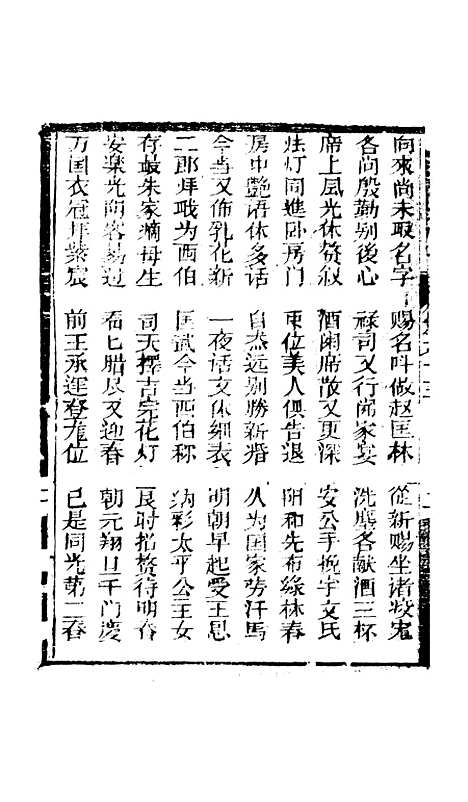 向來尚未取名字 赐名叫做赵匡林 從新赐坐诸
各尚殷勤别後心 禄司又行 家宴 洗塵各献酒三杯
席上風光休赘叙 酒闌席散又更深 安公手挽宇文氏
灯同進卧房門 東位美人便告退 阴和先布綠林春
房中艶语休多话 自杰远别勝新婚 久为国家劳汗馬
今当又佈乳化新 一夜话文休细表 明朝早起爱王恩
二郎拜 为西伯 匡试今当西伯称 纳彩太平公主女
存最朱家嫡母生 司天擇吉完花灯 良时招赘待明春
安楽光阴容易过 看匕腊尽又迎春 朝元翔旦千門慶
万国衣冠拜紫宸 前王承运登龙位 已是同光第二春